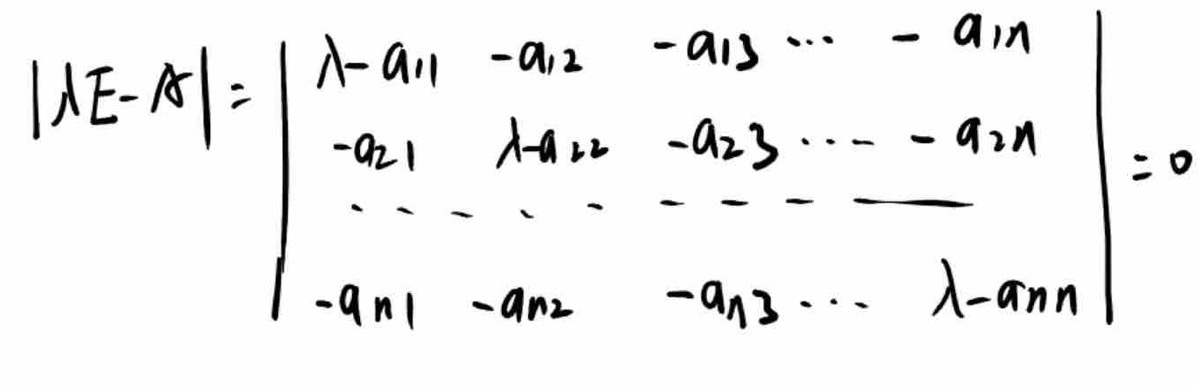 |λE-A| = | λ-a11 -a12 -a13 ··· -a1n |
| -a21 λ-a22 -a23 ···· -a2n | =0
· · · · · · · · ·
| -an1 -an2 -an3 ··· λ-ann |